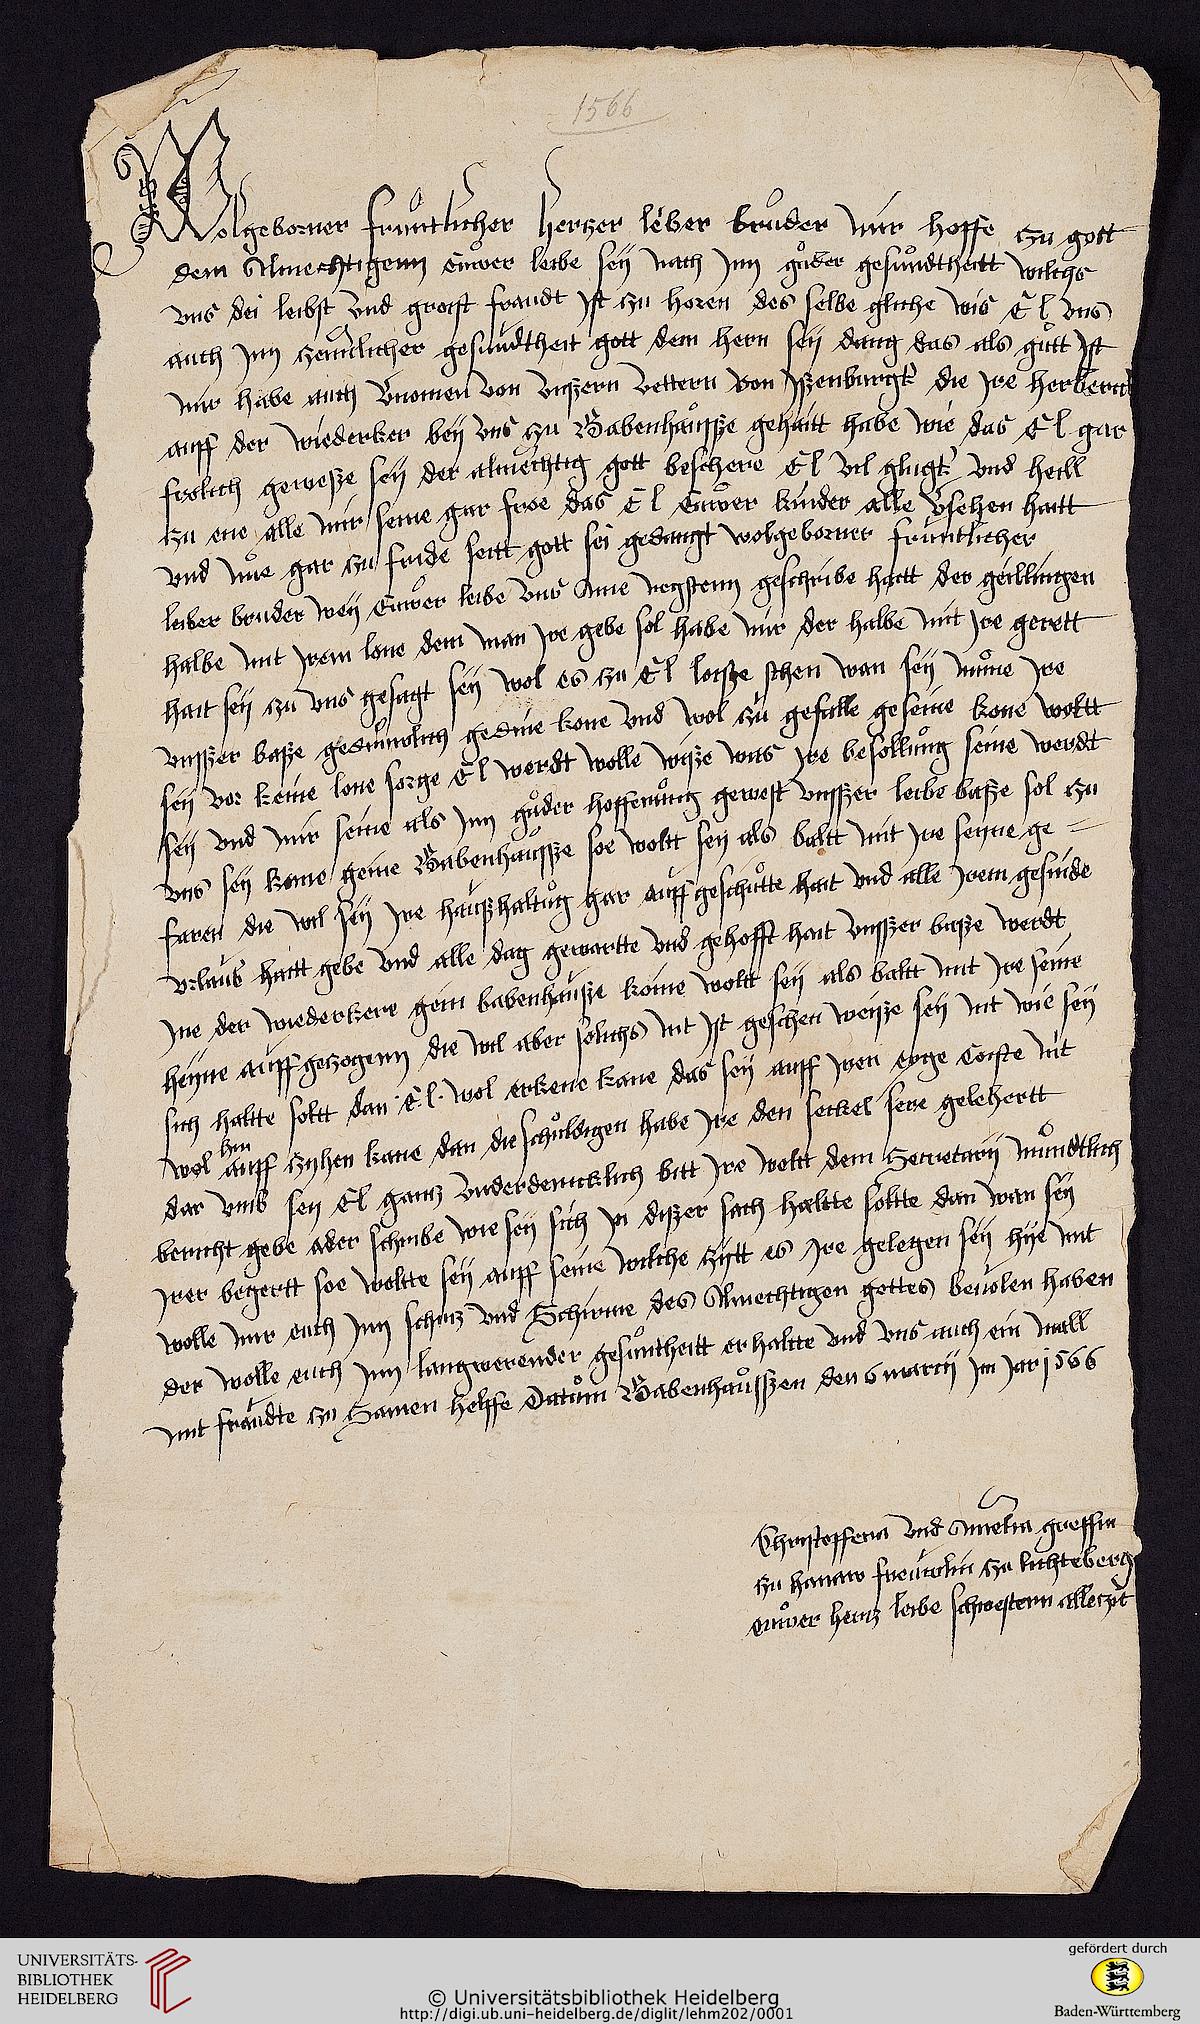 1566
Wolgeborner fruntlicher hertzer leber bruder mir hoffe zu gott
dem Almechtigenn Euwer leibe sey nach Jnn guder gesundtheitt wilchs
vns dei leibst vnd groest fraudt Jst zu horen des selbe gliche wis E l vns
auch Jnn zeimlicher gesundtheit gott dem hern sey dang das als gutt Jst
mir habe auch vnomen von vnszern vettern von Jszenburgk die Jre herberch
auff der wiederker bey vns zu Babenhausze gehaitt habe wie das E l gar
frolich gewesze sey der almechtig gott beschere E l vil glugk vnd heill
zu ene alle mir seine gar froe das E l Euwer kinder alle vsehen haitt
vnd nue gar zu fride seitt gott sei gedangt wolgeborner fruntlicher
leiber bruder wey Euwer leibe vns Ame negstenn geschribe haitt der geillingen
halbe mit Jrem lone dem man Jre gebe sol habe mir der halbe mit Jre gerett
hait sey zu vns gesagt sey wol es zu E l loisze stehen wan sey nuone Jre
vnszer basze gedinolich gedine kone vnd wol zu gefalle geseine kone woltt
sey vor keine lone sorge E l werdt wolle wisze was Jre besollung seine werdt
sey vnd mir seine als Jnn guder hoffenung gewest vnszer leibe basze sol zu
vns sey kome geine Babenhausze soe woltt sey als baltt mit Jre seyne ge =
faren die wil sey Jre hauszhaltug gar auff geschutte hait vnd alle Jrem gesinde
vrlaub haitt gebe vnd alle dag gewartte vnd gehofft hait vnszer basze werdt
Jne der wiederkere gein babenhausze kome woltt sey als baltt mit Jre seine
heyne auff gezogenn die wil aber solichs nit Jst geschen weisze sey nit wie sey
sich haltte soltt dan E. l. wol erkene kane das sey auff Jren eyge Coiste nit
hin
wol auff zyhen kane dan die schuldigen habe Jre den seckel sere gelehertt
dar vmb sey E l ganz vnderdenicklich bitt Jre woltt dem Secretarij mundtlich
bericht gebe ader schribe wie sey sich Jn diszer sach haltte soltte dan wan sey
Jrer begertt soe woltte sey auff seine wilche zytt es Jre gelegen sey hye mit
wolle mir euch Jnn schuz vnd Schirme des Almechtigen gottes beuolen haben
der wolle euch Jnn langwerender gesuntheitt erhaltte vnd vns auch ein mall
mit fraudte zu Samen helffe Datum Babenhauszen den 6 marcij Jm Jar 1566
Christoffera vnd Amelia greffin
zu hanaw freuwlin zu lichteberg
euwer henz leibe schwestern allezit
UNIVERSITÄTS-
BIBLIOTHEK
HEIDELBERG
© Universitätsbibliothek Heidelberg
http://digi.ub.uni-heidelberg.de/diglit/lehm202/0001
gefördert durch
Baden-Württemberg